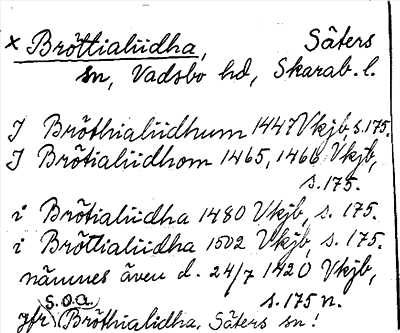 × Bröttialiidha, Säters
sn, Vadsbo hd, Skarab. l.
J Bröthialiidhum 1447 Vkjb, s. 175.
J Brötialiidhom 1465, 1466 Vkjb,
s. 175.
i Brötialiidha 1480 Vkjb, s. 175.
i Bröttialiidha 1502 Vkjb, s. 175.
nämnes även d. 24/7 1420 Vkjb,
s. 175 n.
s.o.a.
jfr Bröthialidha, Säters sn!